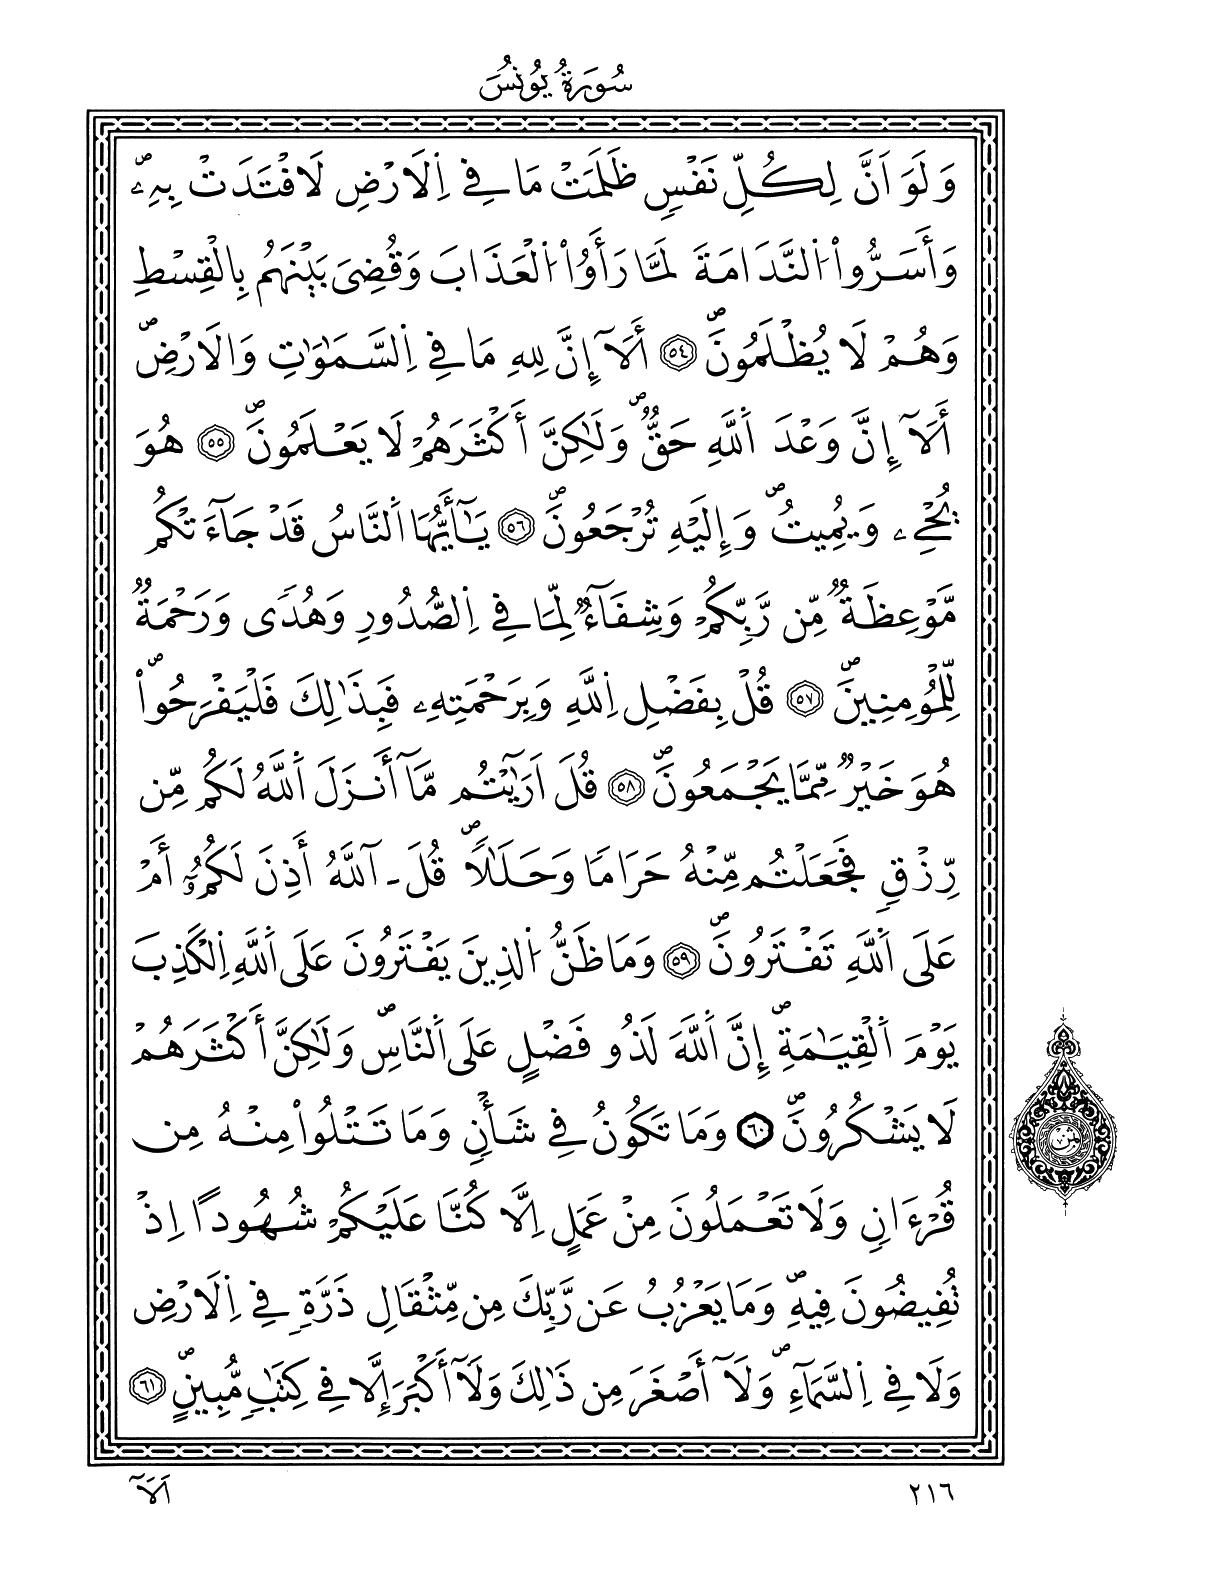 سُورَةُ يُونُسَ
وَلَوَ اَنَّ لِكُلِّ نَفْسٖ ظَلَمَتْ مَا فِے اِ۬لَارْضِ لَافْتَدَتْ بِهِۦۖ
وَأَسَرُّواْ اُ۬لنَّدَامَةَ لَمَّا رَأَوُاْ اُ۬لْعَذَابَ وَقُضِيَ بَيْنَهُم بِالْقِسْطِ
وَهُمْ لَا يُظْلَمُونَۖ ٥٤ أَلَآ إِنَّ لِلهِ مَا فِے اِ۬لسَّمَٰوَٰتِ وَالَارْضِۖ
أَلَآ إِنَّ وَعْدَ اَ۬للَّهِ حَقّٞۖ وَلَٰكِنَّ أَكْثَرَهُمْ لَا يَعْلَمُونَۖ ٥٥ هُوَ
يُحْيِۦ وَيُمِيتُۖ وَإِلَيْهِ تُرْجَعُونَۖ ٥٦ يَٰٓأَيُّهَا اَ۬لنَّاسُ قَدْ جَآءَتْكُم
مَّوْعِظَةٞ مِّن رَّبِّكُمْ وَشِفَآءٞ لِّمَا فِے اِ۬لصُّدُورِ وَهُدٗى وَرَحْمَةٞ
لِّلْمُومِنِينَۖ ٥٧ قُلْ بِفَضْلِ اِ۬للَّهِ وَبِرَحْمَتِهِۦ فَبِذَٰلِكَ فَلْيَفْرَحُواْۖ
هُوَ خَيْرٞ مِّمَّا يَجْمَعُونَۖ ٥٨ قُلَ اَرَٰٓيْتُم مَّآ أَنزَلَ اَ۬للَّهُ لَكُم مِّن
رِّزْقٖ فَجَعَلْتُم مِّنْهُ حَرَامٗا وَحَلَٰلٗاۖ قُلَ ـ آللَّهُ أَذِنَ لَكُمُۥٓ أَمْ
عَلَى اَ۬للَّهِ تَفْتَرُونَۖ ٥٩ وَمَا ظَنُّ اُ۬لذِينَ يَفْتَرُونَ عَلَى اَ۬للَّهِ اِ۬لْكَذِبَ
يَوْمَ اَ۬لْقِيَٰمَةِۖ إِنَّ اَ۬للَّهَ لَذُو فَضْلٍ عَلَى اَ۬لنَّاسِۖ وَلَٰكِنَّ أَكْثَرَهُمْ
لَا يَشْكُرُونَۖ ٦٠ وَمَا تَكُونُ فِے شَأْنٖ وَمَا تَتْلُواْ مِنْهُ مِن
قُرْءَانٖ وَلَا تَعْمَلُونَ مِنْ عَمَلٍ اِلَّا كُنَّا عَلَيْكُمْ شُهُودًا اِذْ
تُفِيضُونَ فِيهِۖ وَمَا يَعْزُبُ عَن رَّبِّكَ مِن مِّثْقَالِ ذَرَّةٖ فِے اِ۬لَارْضِ
وَلَا فِے اِ۬لسَّمَآءِۖ وَلَآ أَصْغَرَ مِن ذَٰلِكَ وَلَآ أَكْبَرَ إِلَّا فِے كِتَٰبٖ مُّبِينٍۖ ٦١
ثمن
٢١٦
اَلَآ